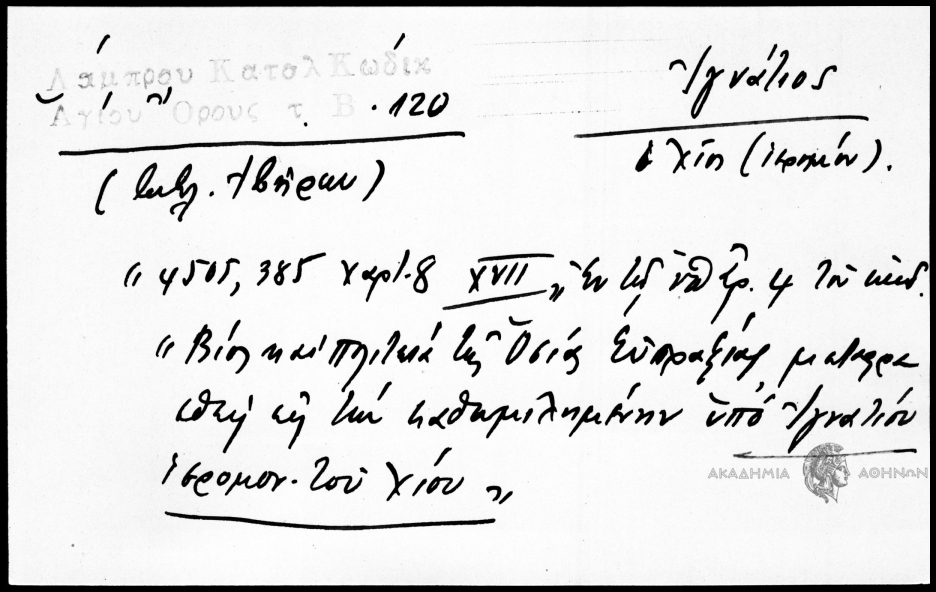 Λάμπρου Καταλ Κώδικ
Ἁγίου Ὄρους τ. Β. 120
Ἰγνάτιος
ὁ Χῖος (ἱερομόν).
(Βιβλ. Ἰβήρων)
" 4505, 385 χαρτ. 8 XVII " Ἐν τῷ ὑπ' ἀρ. 4 τοῦ κώδ.
" Βίος καὶ πολιτεία τῆς Ὁσίας Εὐπραξίας μεταφρα
σθεὶς εἰς τὴν καθωμιλημένην ὑπὸ Ἰγνατίου
ἱερομον. τοῦ Χίου "
ΑΚΑΔΗΜΙΑ ΑΘΗΝΩΝ